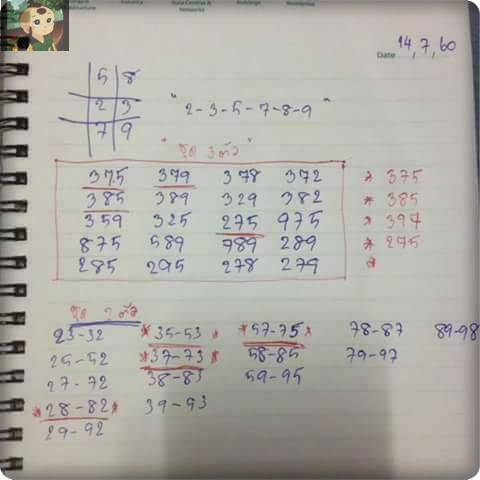 Industry
Data Centres &
Networks
Buildings
Residential
Date 14, 7, 60
5 8
2 3
7 9
"2-3-5-7-8-9"
"ชุด 3 ตัว"
375 379 378 372 * 375
385 389 329 382 * 385
359 325 275 975 * 397
875 589 789 289 * 275
285 295 278 279 *
ชุด 2 ตัว
23-32 *35-53* *57-75* 78-87 89-98
25-52 *37-73* 58-85 79-97
27-72 38-83 59-95
*28-82* 39-93
29-92